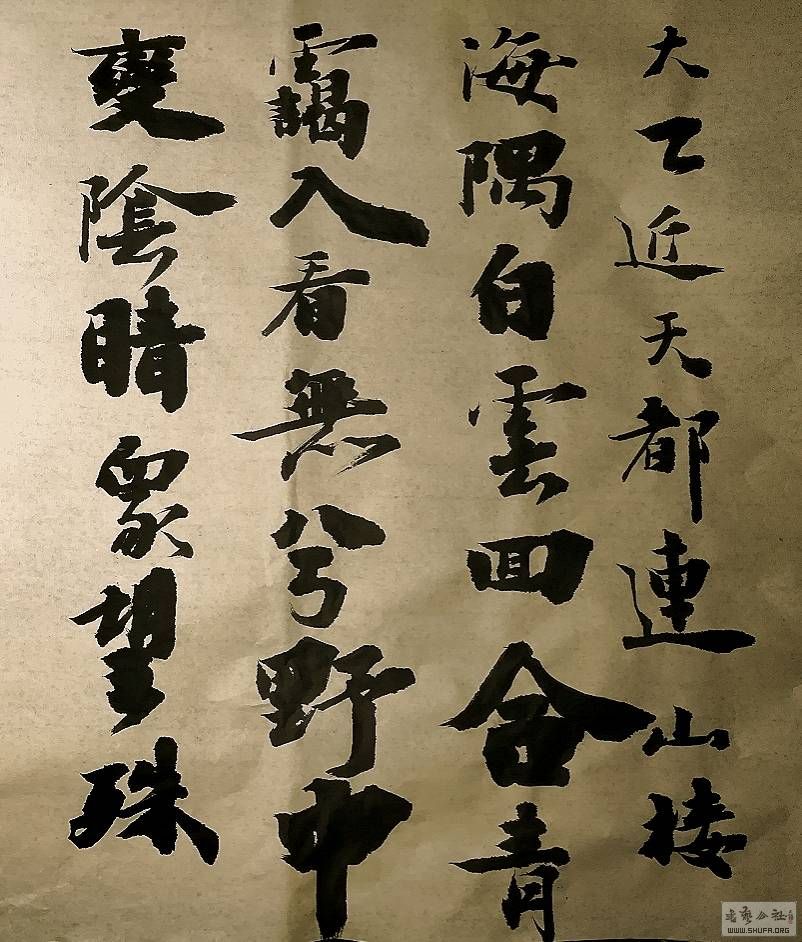 大乙近天都連山接
海隅白雲回合青
靄入看無兮野中
變陰晴眾望殊
书艺公社
WWW.SHUFA.ORG